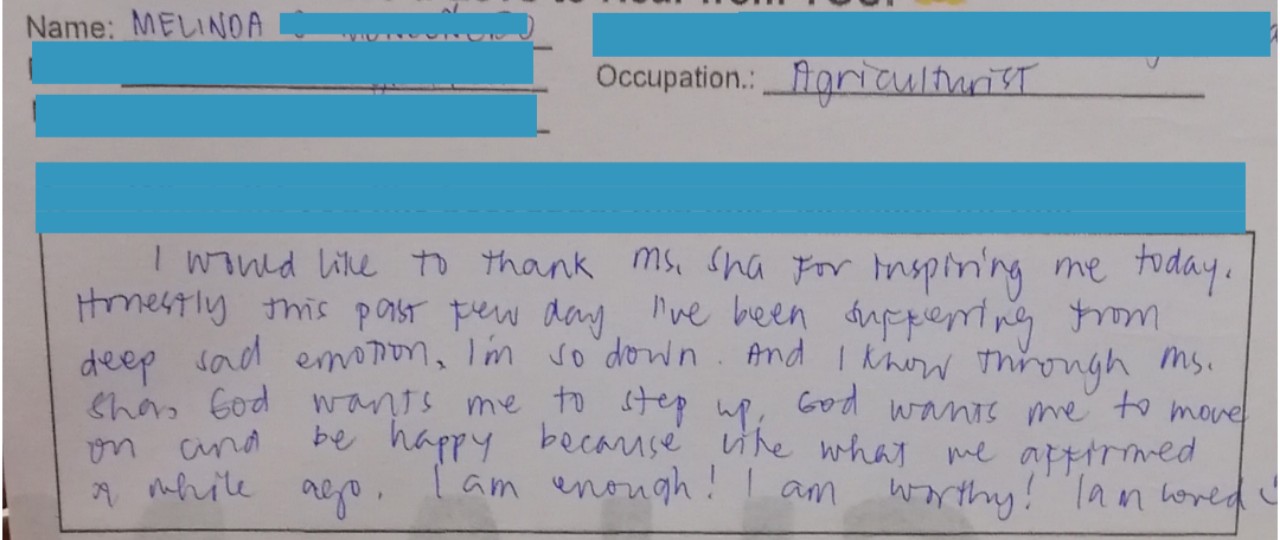 to Hear from YOU!
Name: MELINDA
Occupation.: Agriculturist
I would like to thank ms. Sha for inspiring me today.
Honestly this past few day I've been suffering from
deep sad emotion, I'm so down. And I know through ms.
Sha, God wants me to step up, God wants me to move
on and be happy because like what we affirmed
a while ago. I am enough! I am worthy! I am loved